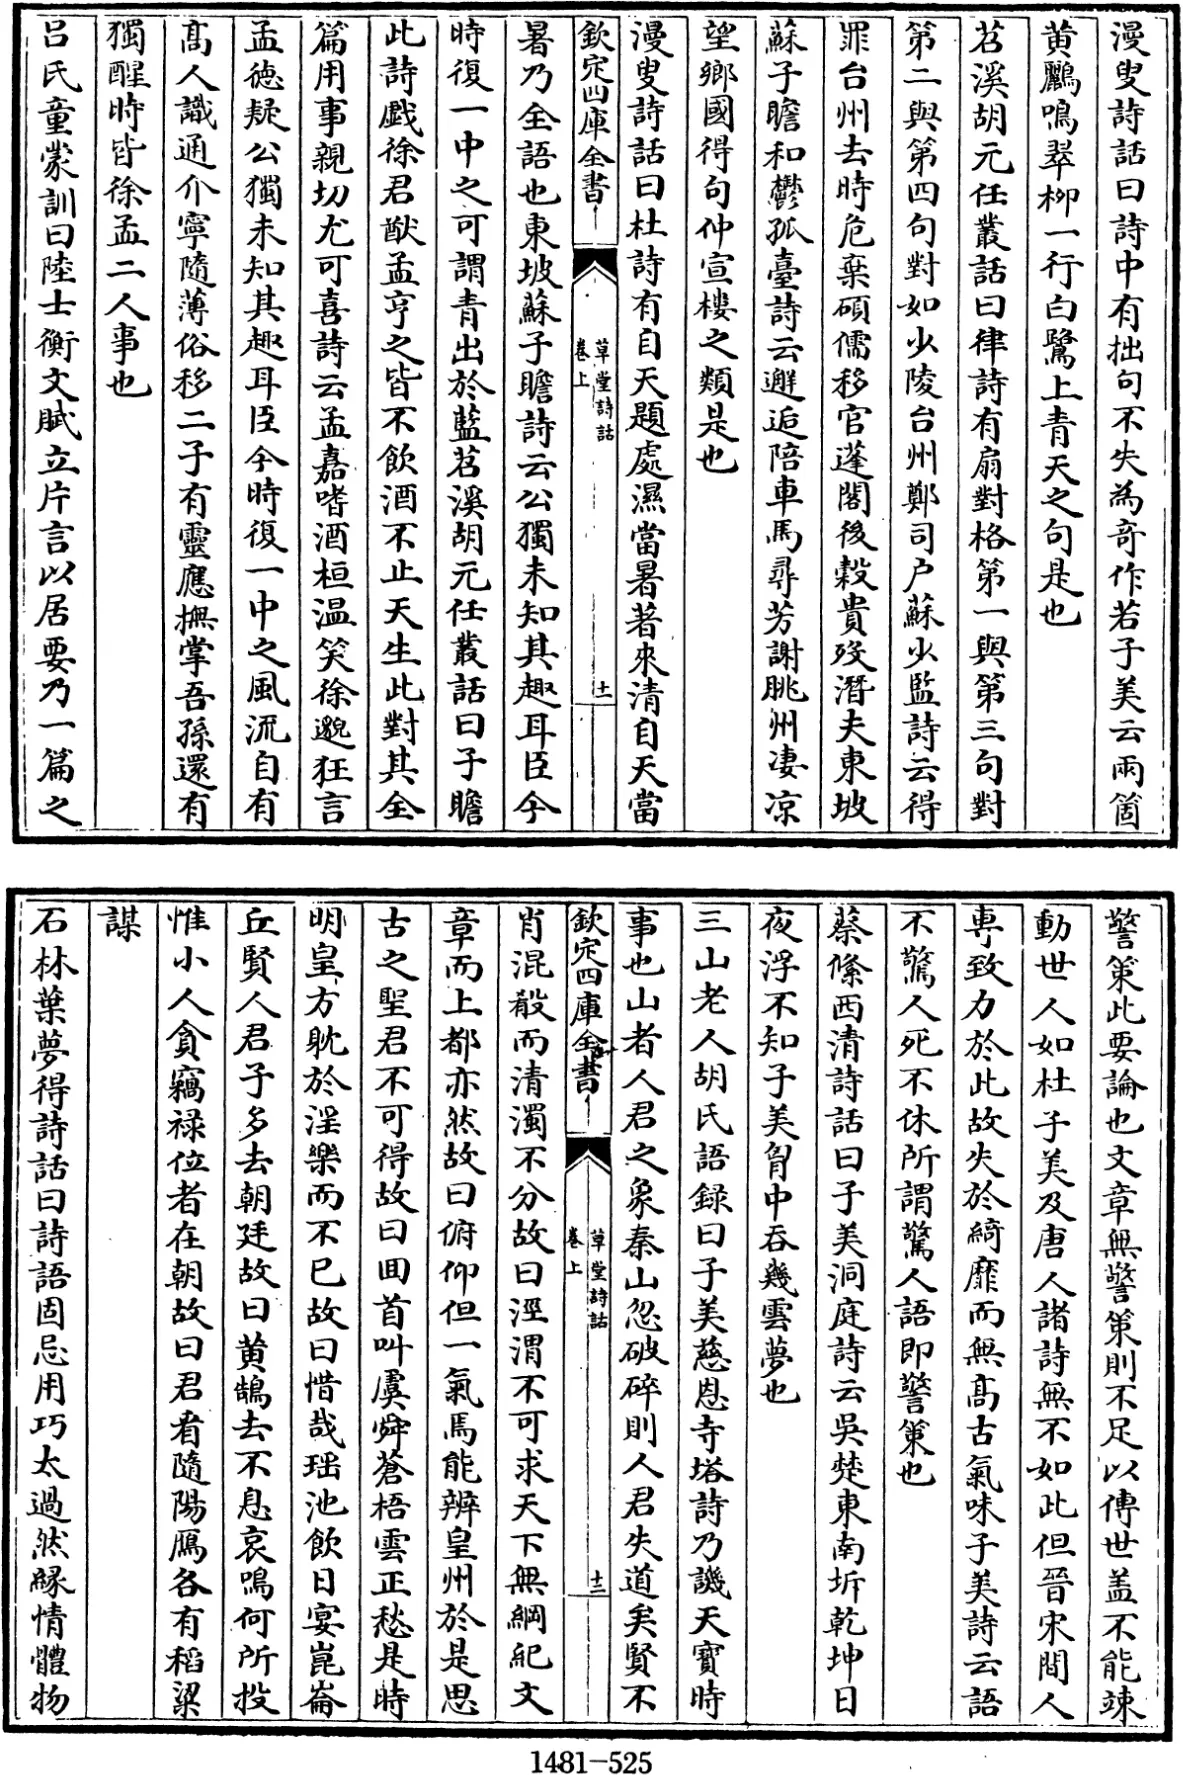 漫叟詩話曰詩中有拙句不失為奇作若子美云兩箇
黄鸝鳴翠柳一行白鷺上青天之句是也
苕溪胡元任叢話曰律詩有扇對格第一與第三句對
第二與第四句對如少陵台州鄭司户蘇少監詩云得
罪台州去時危棄碩儒移官蓬閣後穀貴殁潛夫東坡
蘇子瞻和鬱孤臺詩云邂逅陪車馬尋芳謝朓州凄凉
望鄉國得句仲宣樓之類是也
漫叟詩話曰杜詩有自天題處濕當暑著來清自天當
欽定四庫全書
草堂詩話
卷上
十一
暑乃全語也東坡蘇子瞻詩云公獨未知其趣耳臣今
時復一中之可謂青出於藍苕溪胡元任叢話曰子瞻
此詩戲徐君猷孟亨之皆不飲酒不止天生此對其全
篇用事親切尤可喜詩云孟嘉嗜酒桓温笑徐邈狂言
孟德疑公獨未知其趣耳臣今時復一中之風流自有
高人識通介寧隨薄俗移二子有靈應撫掌吾孫還有
獨醒時皆徐孟二人事也
吕氏童蒙訓曰陸士衡文賦立片言以居要乃一篇之
警策此要論也文章無警策則不足以傳世盖不能竦
動世人如杜子美及唐人諸詩無不如此但晉宋間人
専致力於此故失於綺靡而無高古氣味子美詩云語
不驚人死不休所謂驚人語即警策也
蔡絛西清詩話曰子美洞庭詩云吳楚東南坼乾坤日
夜浮不知子美胷中吞幾雲夢也
三山老人胡氏語録曰子美慈恩寺塔詩乃譏天寳時
事也山者人君之象秦山忽破碎則人君失道矣賢不
欽定四庫全書
草堂詩話
卷上
十二
肖混殽而清濁不分故曰涇渭不可求天下無綱紀文
章而上都亦然故曰俯仰但一氣焉能辨皇州於是思
古之聖君不可得故曰囬首叫虞舜蒼梧雲正愁是時
明皇方躭於淫樂而不已故曰惜哉瑶池飲日宴崑崙
丘賢人君子多去朝廷故曰黄鵠去不息哀鳴何所投
惟小人貪竊禄位者在朝故曰君看隨陽鴈各有稻粱
謀
石林葉夢得詩話曰詩語固忌用巧太過然緣情體物
1481-525